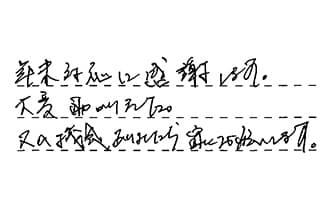 年末対応に感謝します。
大変助かりました。
又の機会がありましたら宜しくお願いします。